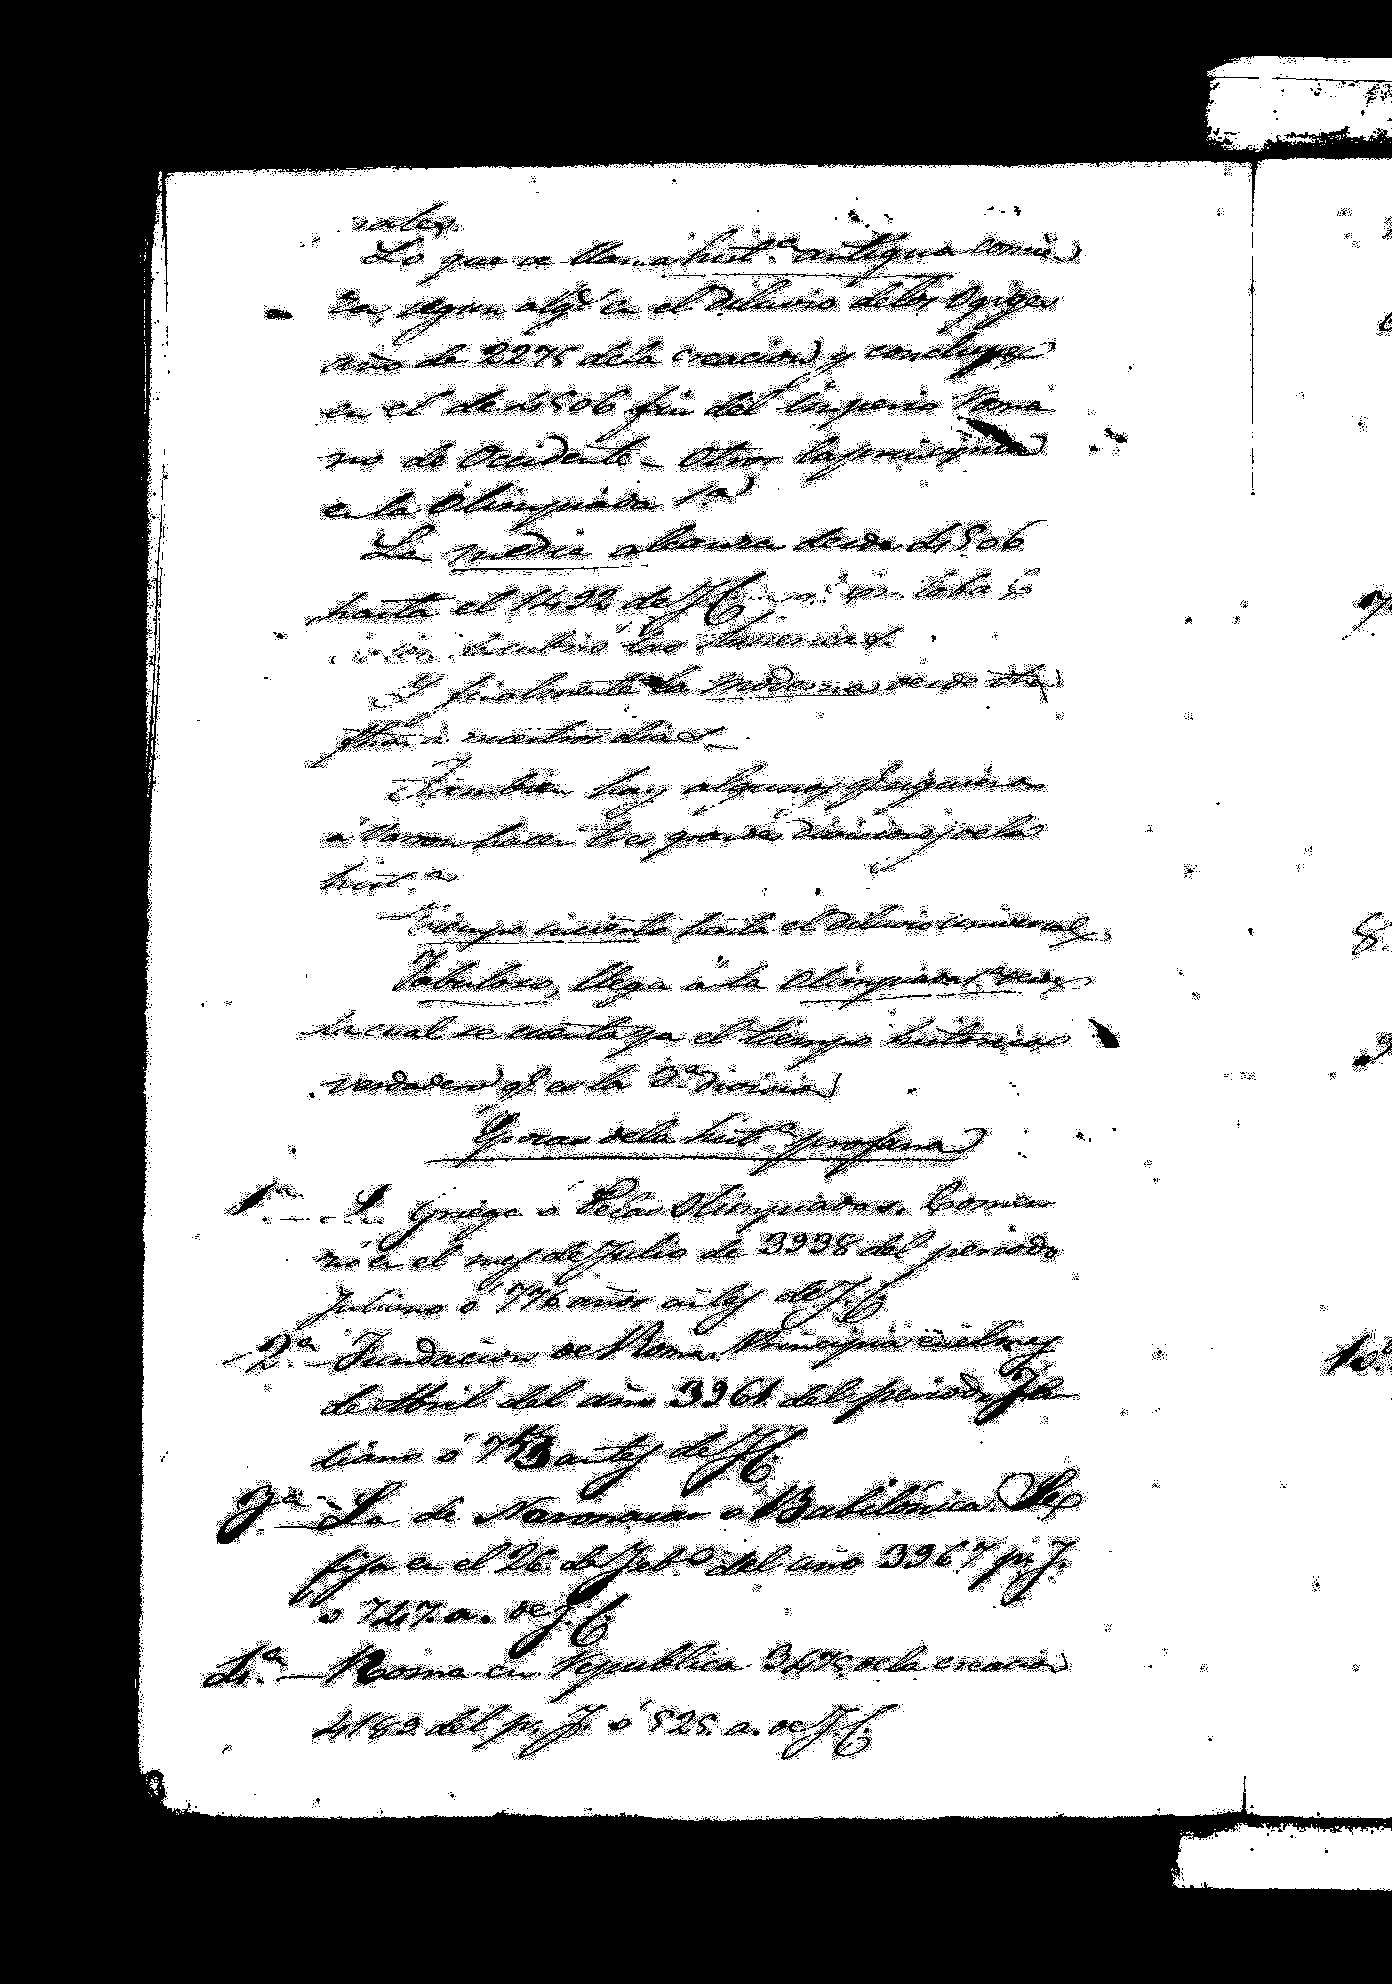 rales.
Lo que se llama hist.ª antigua comie
za, segun alg.s en el Diluvio de los Ogiges
año de 2275 de la creacion y concluye
en el de 4506 fin del Imperio Roma
no de Occidente - Otros la principian
en la Olimpiada 1ª
La media alcanza desde 4506
hasta el 1492 de J.C. en que
descubrio las Americas.
Y finalmente la moderna desde esta
a nuestros dias.
Tambien hay algunos q.e siguiendo
á Varron hacen tres grandes divisiones de la
hist.ª
Tiempo incierto hasta el Diluvio universal,
Fabuloso, llega á la Olimpiada 1ª desde
la cual se cuenta ya el tiempo historico
verdadero q.e es la 3ª division
Epocas de la hist.ª profana
1.ª - La Griega ó de las Olimpiadas. Comen
zó en el mes de Julio de 3938 del periodo
Juliano ó 776 años antes de J.C.
2.ª - Fundacion de Roma. Principia en el mes
de Abril del año 3961 del periodo Ju
liano ó 753 antes de J.C.
3.ª - La de Nabonasar ó Babilónica Se
fija en el 26 de Feb.o del año 3967 p. J.
ó 747. a. de J.C.
4.ª - Roma en Republica de la creacion
del p. J. ó 525. a. de J.C.